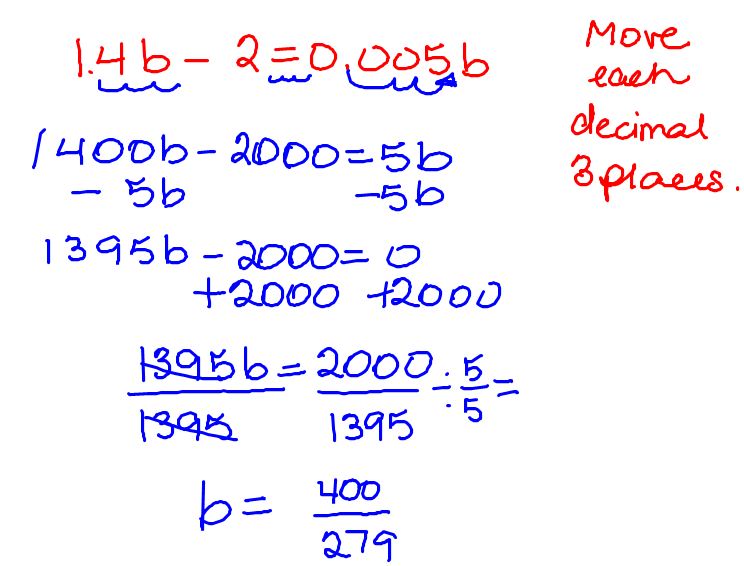 1.4b - 2 = 0.005b
Move
each
decimal
3 places.
1400b - 2000 = 5b
- 5b -5b
1395b - 2000 = 0
+2000 +2000
1395b = 2000 ÷ 5 =
1395 1395 5
b = 400
279